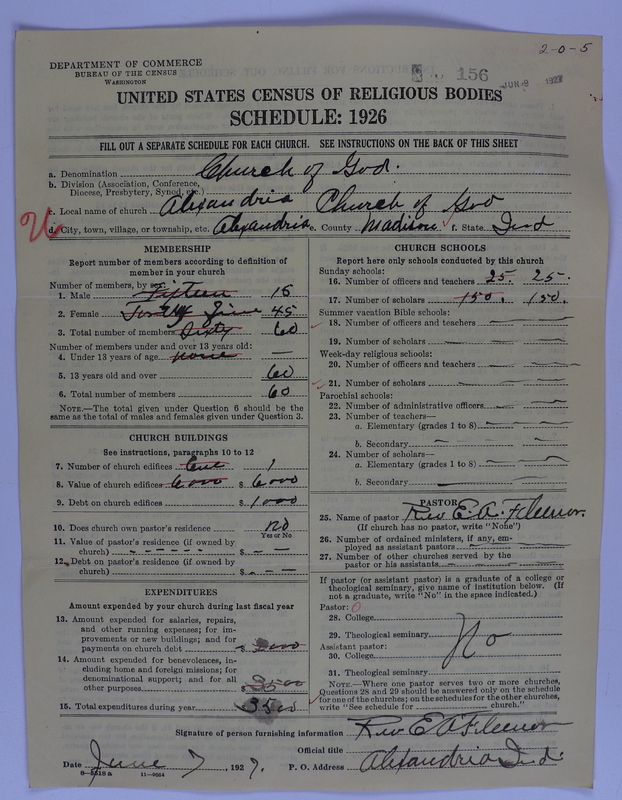 2-0-5
DEPARTMENT OF COMMERCE
BUREAU OF THE CENSUS
WASHINGTON
156
JUN 8 1927
UNITED STATES CENSUS OF RELIGIOUS BODIES
SCHEDULE: 1926
FILL OUT A SEPARATE SCHEDULE FOR EACH CHURCH. SEE INSTRUCTIONS ON THE BACK OF THIS SHEET
a. Denomination Church of God.
b. Division (Association, Conference, Diocese, Presbytery, Synod, etc.)
c. Local name of church Alexandria Church of God
d. City, town, village, or township, etc. Alexandria e. County Madison f. State Ind
MEMBERSHIP
Report number of members according to definition of member in your church
Number of members, by sex:
1. Male Fifteen 15
2. Female Forty Five 45
3. Total number of members Sixty 60
Number of members under and over 13 years old:
4. Under 13 years of age none —
5. 13 years old and over 60
6. Total number of members 60
NOTE.—The total given under Question 6 should be the same as the total of males and females given under Question 3.
CHURCH BUILDINGS
See instructions, paragraphs 10 to 12
7. Number of church edifices One 1
8. Value of church edifices 6000 $ 6000
9. Debt on church edifices $ 1000
10. Does church own pastor's residence no
Yes or No
11. Value of pastor's residence (if owned by church) - - - - - $ - -
12. Debt on pastor's residence (if owned by church) $ - - -
EXPENDITURES
Amount expended by your church during last fiscal year
13. Amount expended for salaries, repairs, and other running expenses; for improvements or new buildings; and for payments on church debt $
14. Amount expended for benevolences, including home and foreign missions; for denominational support; and for all other purposes $
15. Total expenditures during year 3500
CHURCH SCHOOLS
Report here only schools conducted by this church
Sunday schools:
16. Number of officers and teachers 25. 25-
17. Number of scholars 150. 150.
Summer vacation Bible schools:
18. Number of officers and teachers
19. Number of scholars
Week-day religious schools:
20. Number of officers and teachers
21. Number of scholars
Parochial schools:
22. Number of administrative officers
23. Number of teachers—
a. Elementary (grades 1 to 8)
b. Secondary
24. Number of scholars—
a. Elementary (grades 1 to 8)
b. Secondary
PASTOR
25. Name of pastor Rev. E. A. Fleenor.
(If church has no pastor, write "None")
26. Number of ordained ministers, if any, employed as assistant pastors
27. Number of other churches served by the pastor or his assistants
If pastor (or assistant pastor) is a graduate of a college or theological seminary, give name of institution below. (If not a graduate, write "No" in the space indicated.)
Pastor: 0
28. College
29. Theological seminary No
Assistant pastor:
30. College
31. Theological seminary
NOTE.—Where one pastor serves two or more churches, Questions 28 and 29 should be answered only on the schedule for one of the churches; on the schedules for the other churches, write "See schedule for church."
Signature of person furnishing information Rev E A Fleenor
Official title
Date June 7, 1927. P. O. Address Alexandria Ind.
8-5518a 11-9564